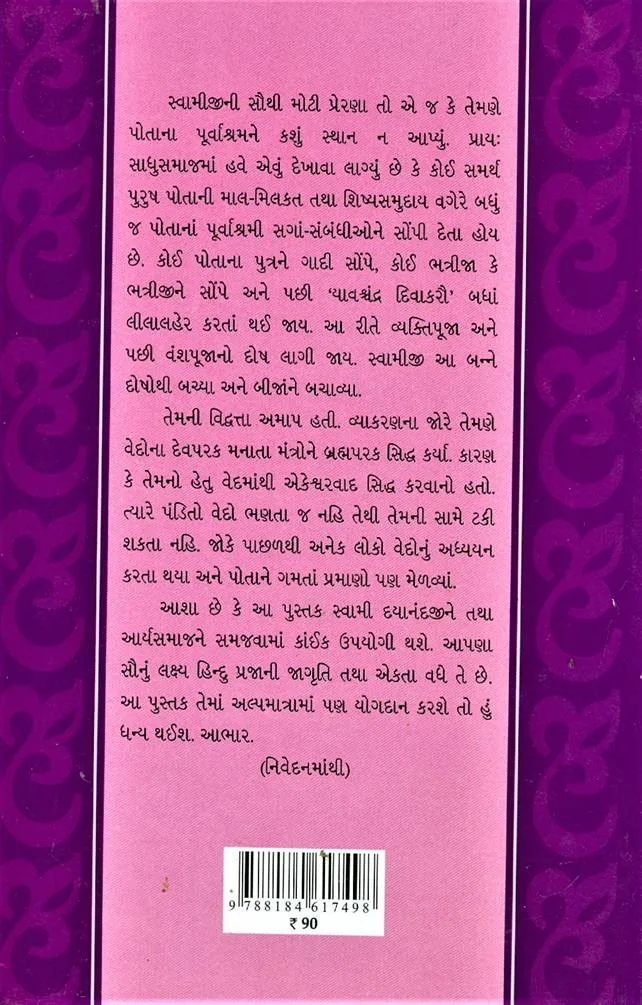 સ્વામીજીની સૌથી મોટી પ્રેરણા તો એ જ કે તેમણે
પોતાના પૂર્વાશ્રમને કશું સ્થાન ન આપ્યું. પ્રાયઃ
સાધુસમાજમાં હવે એવું દેખાવા લાગ્યું છે કે કોઈ સમર્થ
પુરુષ પોતાની માલ-મિલકત તથા શિષ્યસમુદાય વગેરે બધું
જ પોતાનાં પૂર્વાશ્રમી સગાં-સંબંધીઓને સોંપી દેતા હોય
છે. કોઈ પોતાના પુત્રને ગાદી સોંપે, કોઈ ભત્રીજા કે
ભત્રીજીને સોંપે અને પછી ‘યાવશ્ચંદ્ર દિવાકરૌ’ બધાં
લીલાલહેર કરતાં થઈ જાય. આ રીતે વ્યક્તિપૂજા અને
પછી વંશપૂજાનો દોષ લાગી જાય. સ્વામીજી આ બન્ને
દોષોથી બચ્યા અને બીજાંને બચાવ્યા.
તેમની વિદ્વત્તા અમાપ હતી. વ્યાકરણના જોરે તેમણે
વેદોના દેવપરક મનાતા મંત્રોને બ્રહ્મપરક સિદ્ધ કર્યા. કારણ
કે તેમનો હેતુ વેદમાંથી એકેશ્વરવાદ સિદ્ધ કરવાનો હતો.
ત્યારે પંડિતો વેદો ભણતા જ નહિ તેથી તેમની સામે ટકી
શકતા નહિ. જોકે પાછળથી અનેક લોકો વેદોનું અધ્યયન
કરતા થયા અને પોતાને ગમતાં પ્રમાણો પણ મેળવ્યાં.
આશા છે કે આ પુસ્તક સ્વામી દયાનંદજીને તથા
આર્યસમાજને સમજવામાં કાંઈક ઉપયોગી થશે. આપણા
સૌનું લક્ષ્ય હિન્દુ પ્રજાની જાગૃતિ તથા એકતા વધે તે છે.
આ પુસ્તક તેમાં અલ્પમાત્રામાં પણ યોગદાન કરશે તો હું
ધન્ય થઈશ. આભાર.
(નિવેદનમાંથી)
9 788184 617498
₹ 90